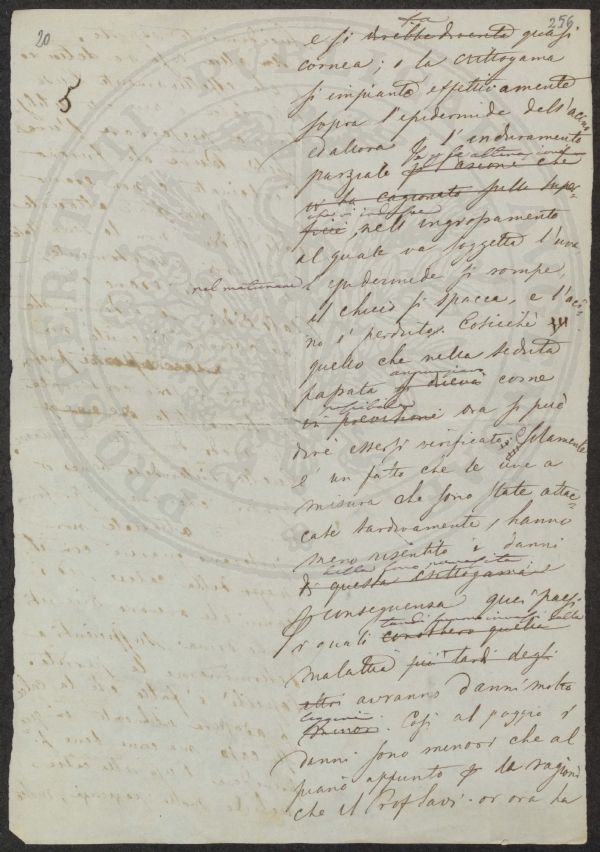 20
256
5
fa
e si direbbe diventa quasi
cornea; o la crittogama
si impianta effettivamente
sopra l'epidermide dell'acino
ed allora l'induramento
parziale
azione che
vi ha cagionato sulla super-
ficie, nell'ingrossamento
al quale va soggetta l'uva
nel maturare
l'epidermide si rompe,
il chicco si spacca, e l'aci-
no è perduto. Cosicchè
quello che nella seduta
annunziava
passata si dieva come
possibile
in previsione ora si può
dire essersi verificato. Solamente
è un fatto che le uve a
misura che sono state attac-
cate tardivamente, hanno
meno risentito i danni
della sua invasita
di questa crittogama e
p conseguenza quei paesi
tardi furono invasi dalla
i quali conobbero quella
malattia più tardi degli
altri avranno danni molto
leggieri
minori. Così al poggio i
danni sono minori che al
piano appunto p la ragione
che il Prof Savi or ora ha